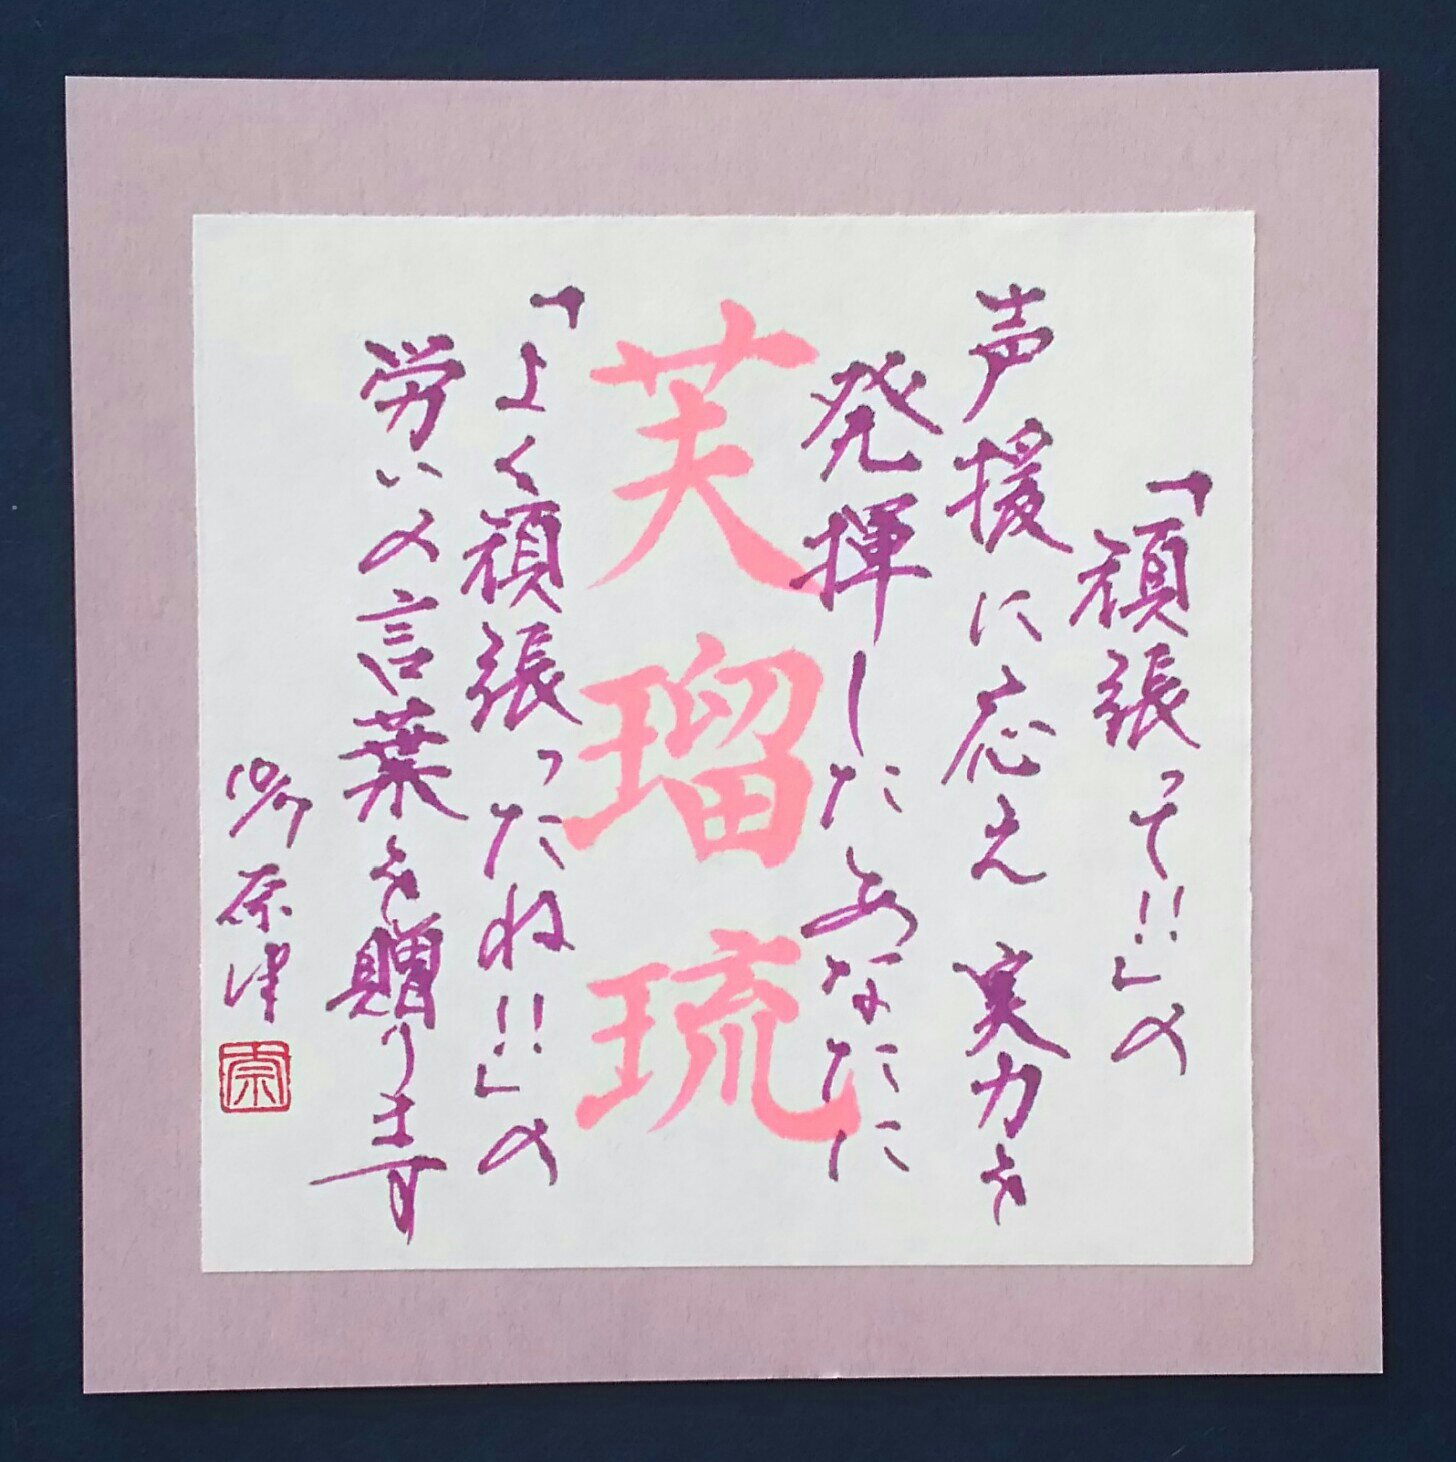 「頑張って!!」の
声援に応え 実力を
発揮したあなたに
芙瑠琉
「よく頑張ったね!!」の
労いの言葉を贈ります
奈津
奈